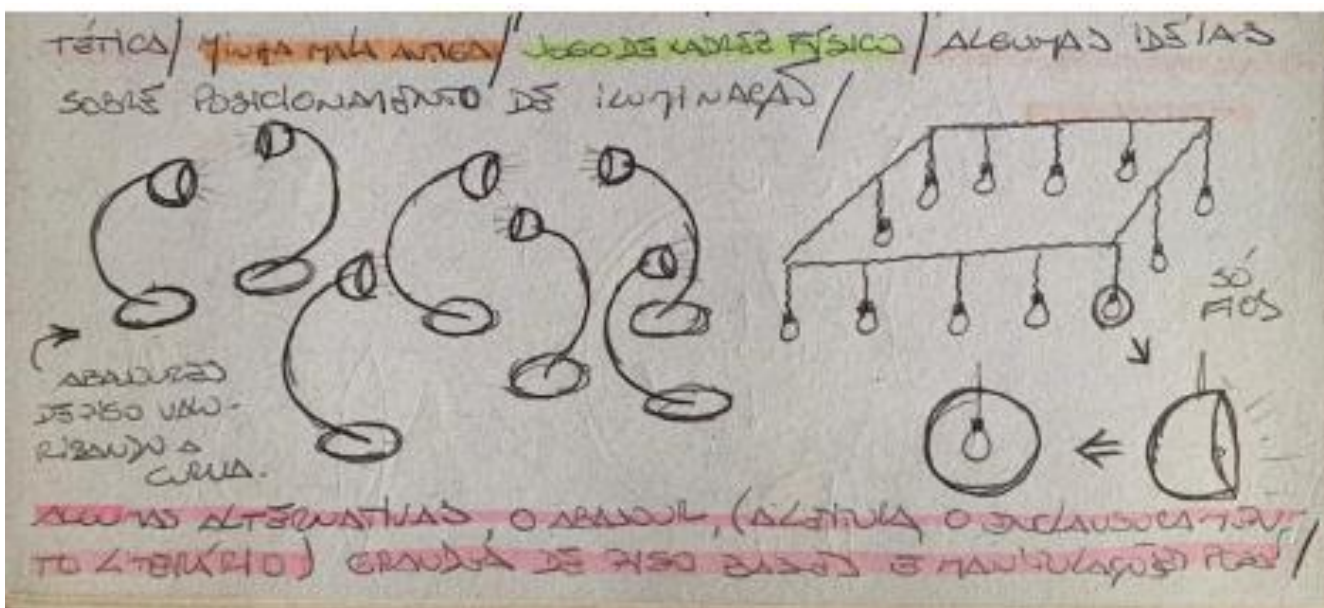 TÉTICA/ MINHA MALA ANTIGA/ JOGO DE XADREZ FÍSICO/ ALGUMAS IDÉIAS
SOBRE POSICIONAMENTO DE ILUMINAÇÃO/
SÓ
FIOS
ABAJURES
DE PISO VALO-
RIZANDO A
CURVA.
ALGUMAS ALTERNATIVAS, O ABAJUR, (A LEITURA, O ENCLAUSURAMEN-
TO LITERÁRIO) DE PISO BASES E MANIPULAÇÕES